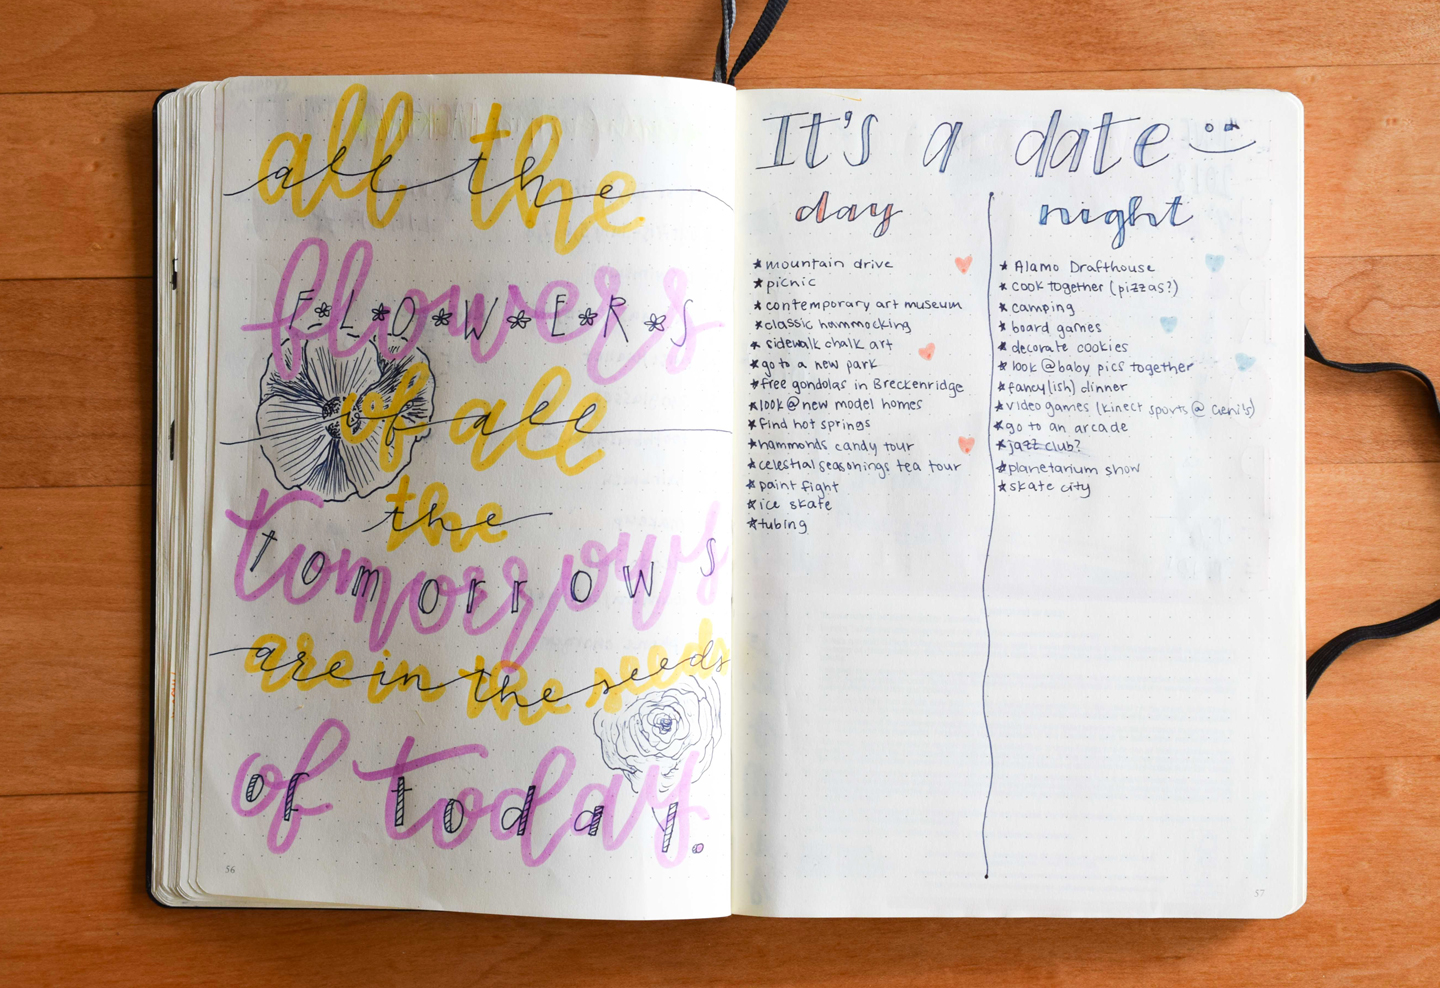 all the
all the
flowers
F L O W E R S
of all
of all
the
the
tomorrows
tomorrows
are in the seeds
are in the seeds
of today
of today.
56
It's a date
day
★ mountain drive
★ picnic
★ contemporary art museum
★ classic hammocking
★ sidewalk chalk art
★ go to a new park
★ free gondolas in Breckenridge
★ look @ new model homes
★ find hot springs
★ hammonds candy tour
★ celestial seasonings tea tour
★ paint fight
★ ice skate
★ tubing
night
★ Alamo Drafthouse
★ cook together (pizzas?)
★ camping
★ board games
★ decorate cookies
★ look @ baby pics together
★ fancy(ish) dinner
★ video games (kinect sports @
★ go to an arcade
★ jazz club?
★ planetarium show
★ skate city
57